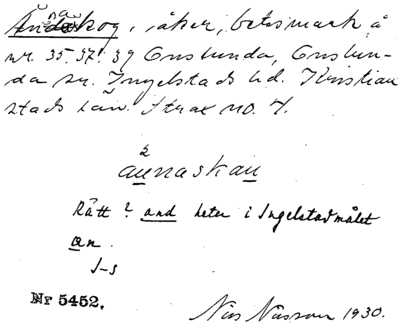 Åndskog, åker, betesmark å
nr. 35. 37. 39 Onslunda, Onslun-
da sn. Ingelstads hd. Kristian
stads län. Strax no. 4.
2
aunaskau
Rätt? and heter i Ingelstadmålet
an.
J-s
Nr 5452.
Nils Nilsson 1930.